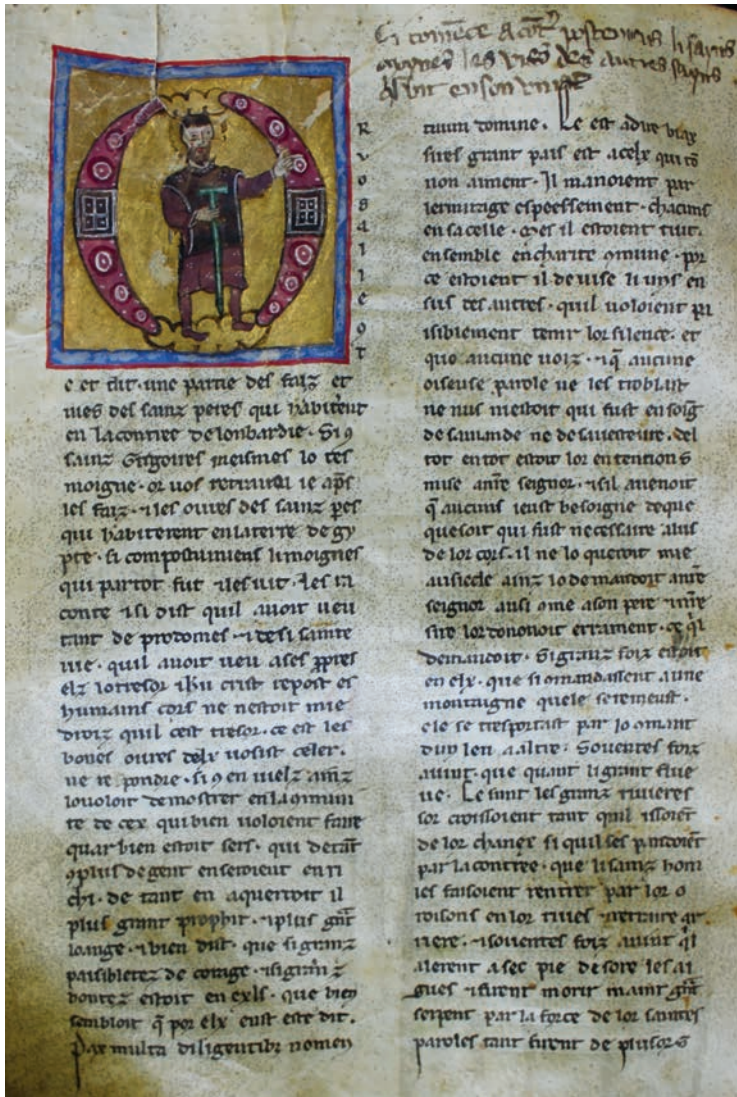 Ci comēce
les vies des autres
R v o s a i l e o t
e et dit. une partie des faiz et
mes des sainz peres qui habiterent
en la contree de lonbardie. Si 9
sainz Grigoires meismes lo tes
moigne. or vos retrairai ie ap̄s
les faiz. ⁊ les oures des sainz pes
qui habiterent en la terre degy
pte. si com postumiens li moignes
qui par tot fut ⁊ les uit. les ra
conte ⁊ si dist quil auoit ueu
tant de prodomes. ⁊ de si sainte
uie. quil auoit ueu a ses ꝓpres
elz lo tresor ihu crist repost es
humains cors ne nestoit mie
droiz quil cest tresor. ce est les
bones oures delx uosist celer.
ne re pondre. si 9 en uielz ainz
lo uoloit demostrer en la 9mun
te de cex qui bien uoloient faire
quar bien estoit sers. qui de tāt
9 plus de gent en seroient en ri
chi. de tant en aquerroit il
plus grant prophit. ⁊ plus gn̄t
loange. ⁊ bien dist. que si granz
paisibletez de corage. ⁊ si granz
bontez estoit en exls. que bien
sembloit q̄ por elx eust este dit.
Pax multa diligentibꝫ nomen
tuum domine. Ce est a dire biax
sires grant pais est a celx qui tō
non aiment. Il manoient par
lermitage espeessement. chacuns
en sa celle. mes il estoient tuit
ensemble en charite 9mune. por
ce estoient il deuise li uns en
sus des autres. quil uoloient pa
isiblement tenir lor silence. et
que aucune uoiz. ⁊ q̄ aucune
oiseuse parole ne les troblast
ne nus niestoit qui fust en soig
de sa uiande ne de sa uesteure. del
tot en tot estoit lor entencions
mise a nr̄e seignor. ⁊ sil auenoit
q̄ aucuns ieust besoigne de que
que soit qui fust necessaire a lus
de lor cors. il ne lo queroit mie
au siecle ainz lo demandoit a nr̄e
seignor ausi 9me a son pere ⁊ nr̄e
sire lor donnoit erraument. ce q̄l
demandoit. Si granz foiz estoit
en elx. que si 9mandassent a une
montaigne quele se remeust.
ele se tresportast par lo 9mant
dun leu a altre. Souentes foiz
auint. que quant li grant flue
ue. Ce sunt les granz riuieres
sor croissoient tant quil issoiēt
de lor chanes si quil ses pandoiēt
par la contree. que li sainz hom
les faisoient rentrer par lor o
roisons en lor riues ⁊ retraire ar
riere. ⁊ souentes foiz auint q̄l
alerent a sec pie desore les ai
gues ⁊ firent morir maint gn̄t
serpent par la force de lor saintes
paroles tant furent de plusors